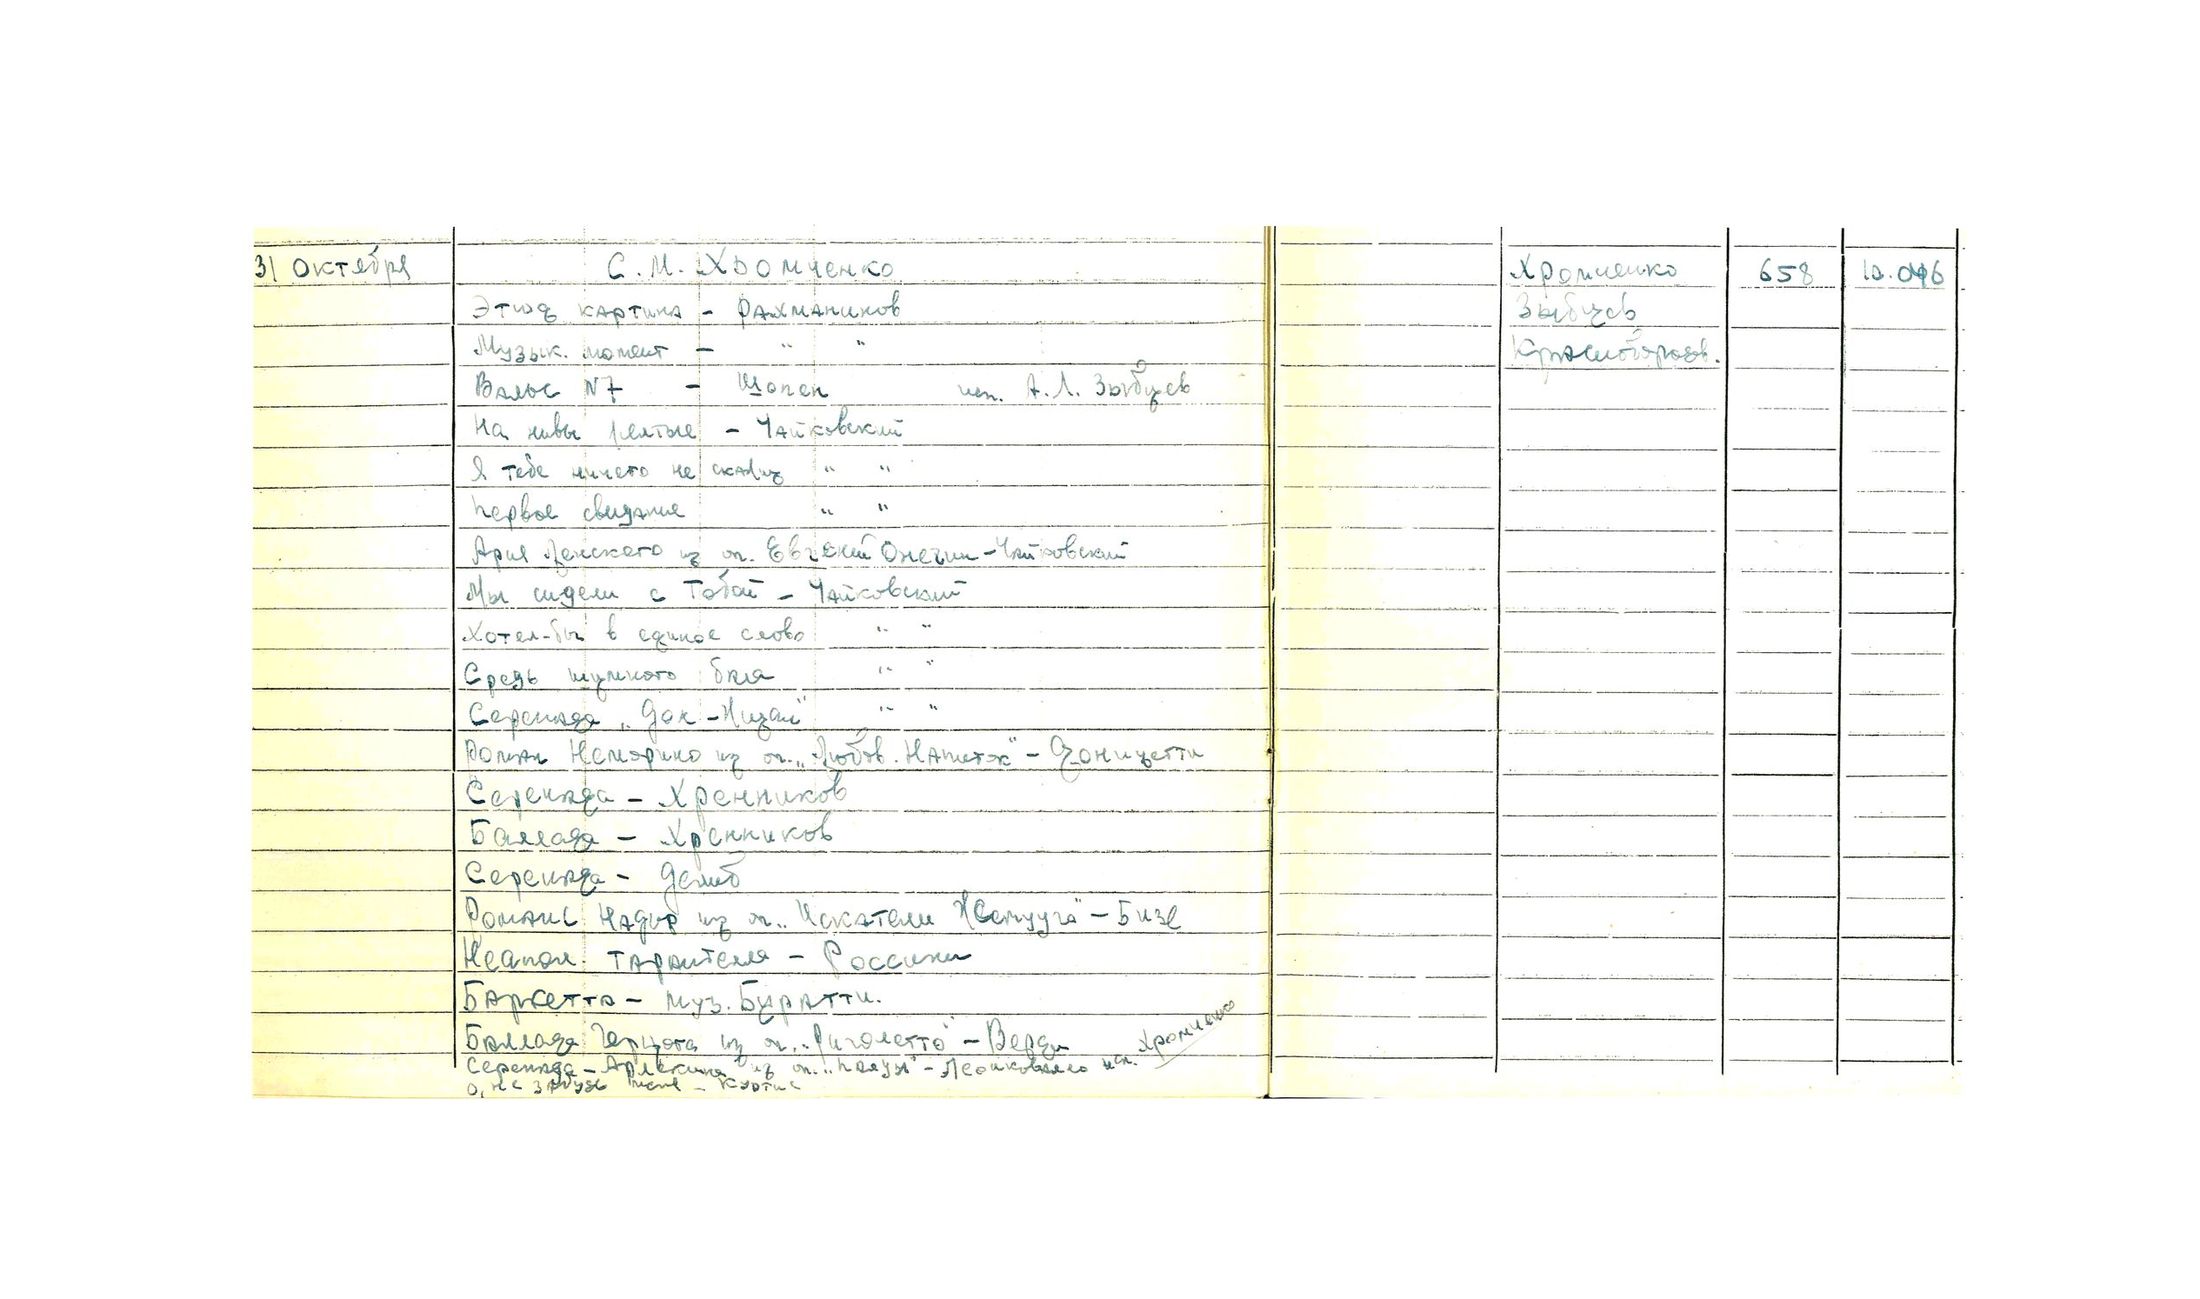 31 октября С. М. Хромченко Хромченко 658 10.046
Этюд картина - Рахманинов Зыбцев
Музык. момент - " " Краснобородов.
Вальс N7 - Шопен исп. А.Л. Зыбцев
На нивы желтые - Чайковский
Я тебе ничего не скажу " "
Первое свидание " "
Ария Ленского из оп. Евгений Онегин - Чайковский
Мы сидели с тобой - Чайковский
Хотел-бы в единое слово " "
Средь шумного бала " "
Серенада „Дон-Жуан" " "
Роман Неморино из оп. „Любов. Напиток" - Доницетти
Серенада - Хренников
Баллада - Хренников
Серенада -
Романс Надир из оп. „Искатели Жемчуга" - Бизе
Неапол. тарантелла - Россини
Баркетта - муз. Буратти.
Баллада Герцога из оп. „Риголетто" - Верди
Серенада - Арлекина из оп. „Паяцы" - Леонковалло исп. Хромченко
О, не забудь меня - Куртис